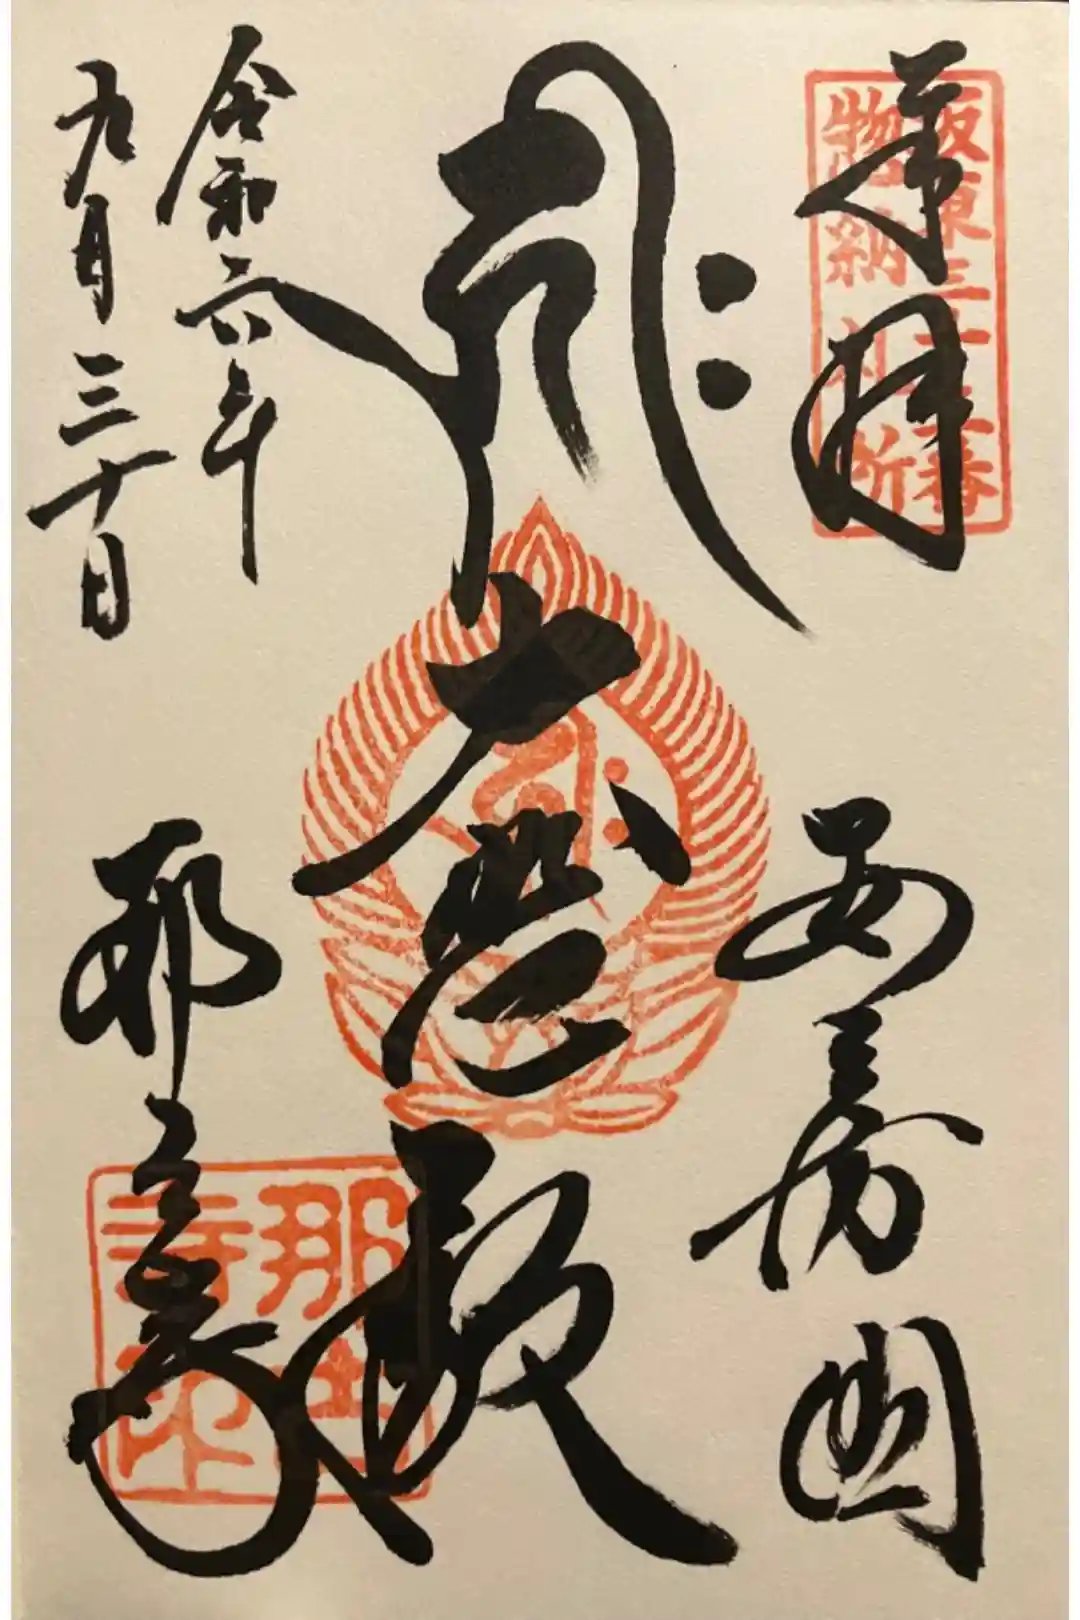 奉拝
坂東三十三番
惣納札所
安房国
𑖮𑖿𑖨𑖱𑖾
𑖮𑖿𑖨𑖱𑖾
大悲殿
令和六年
九月三十日
那古寺
那古
寺印